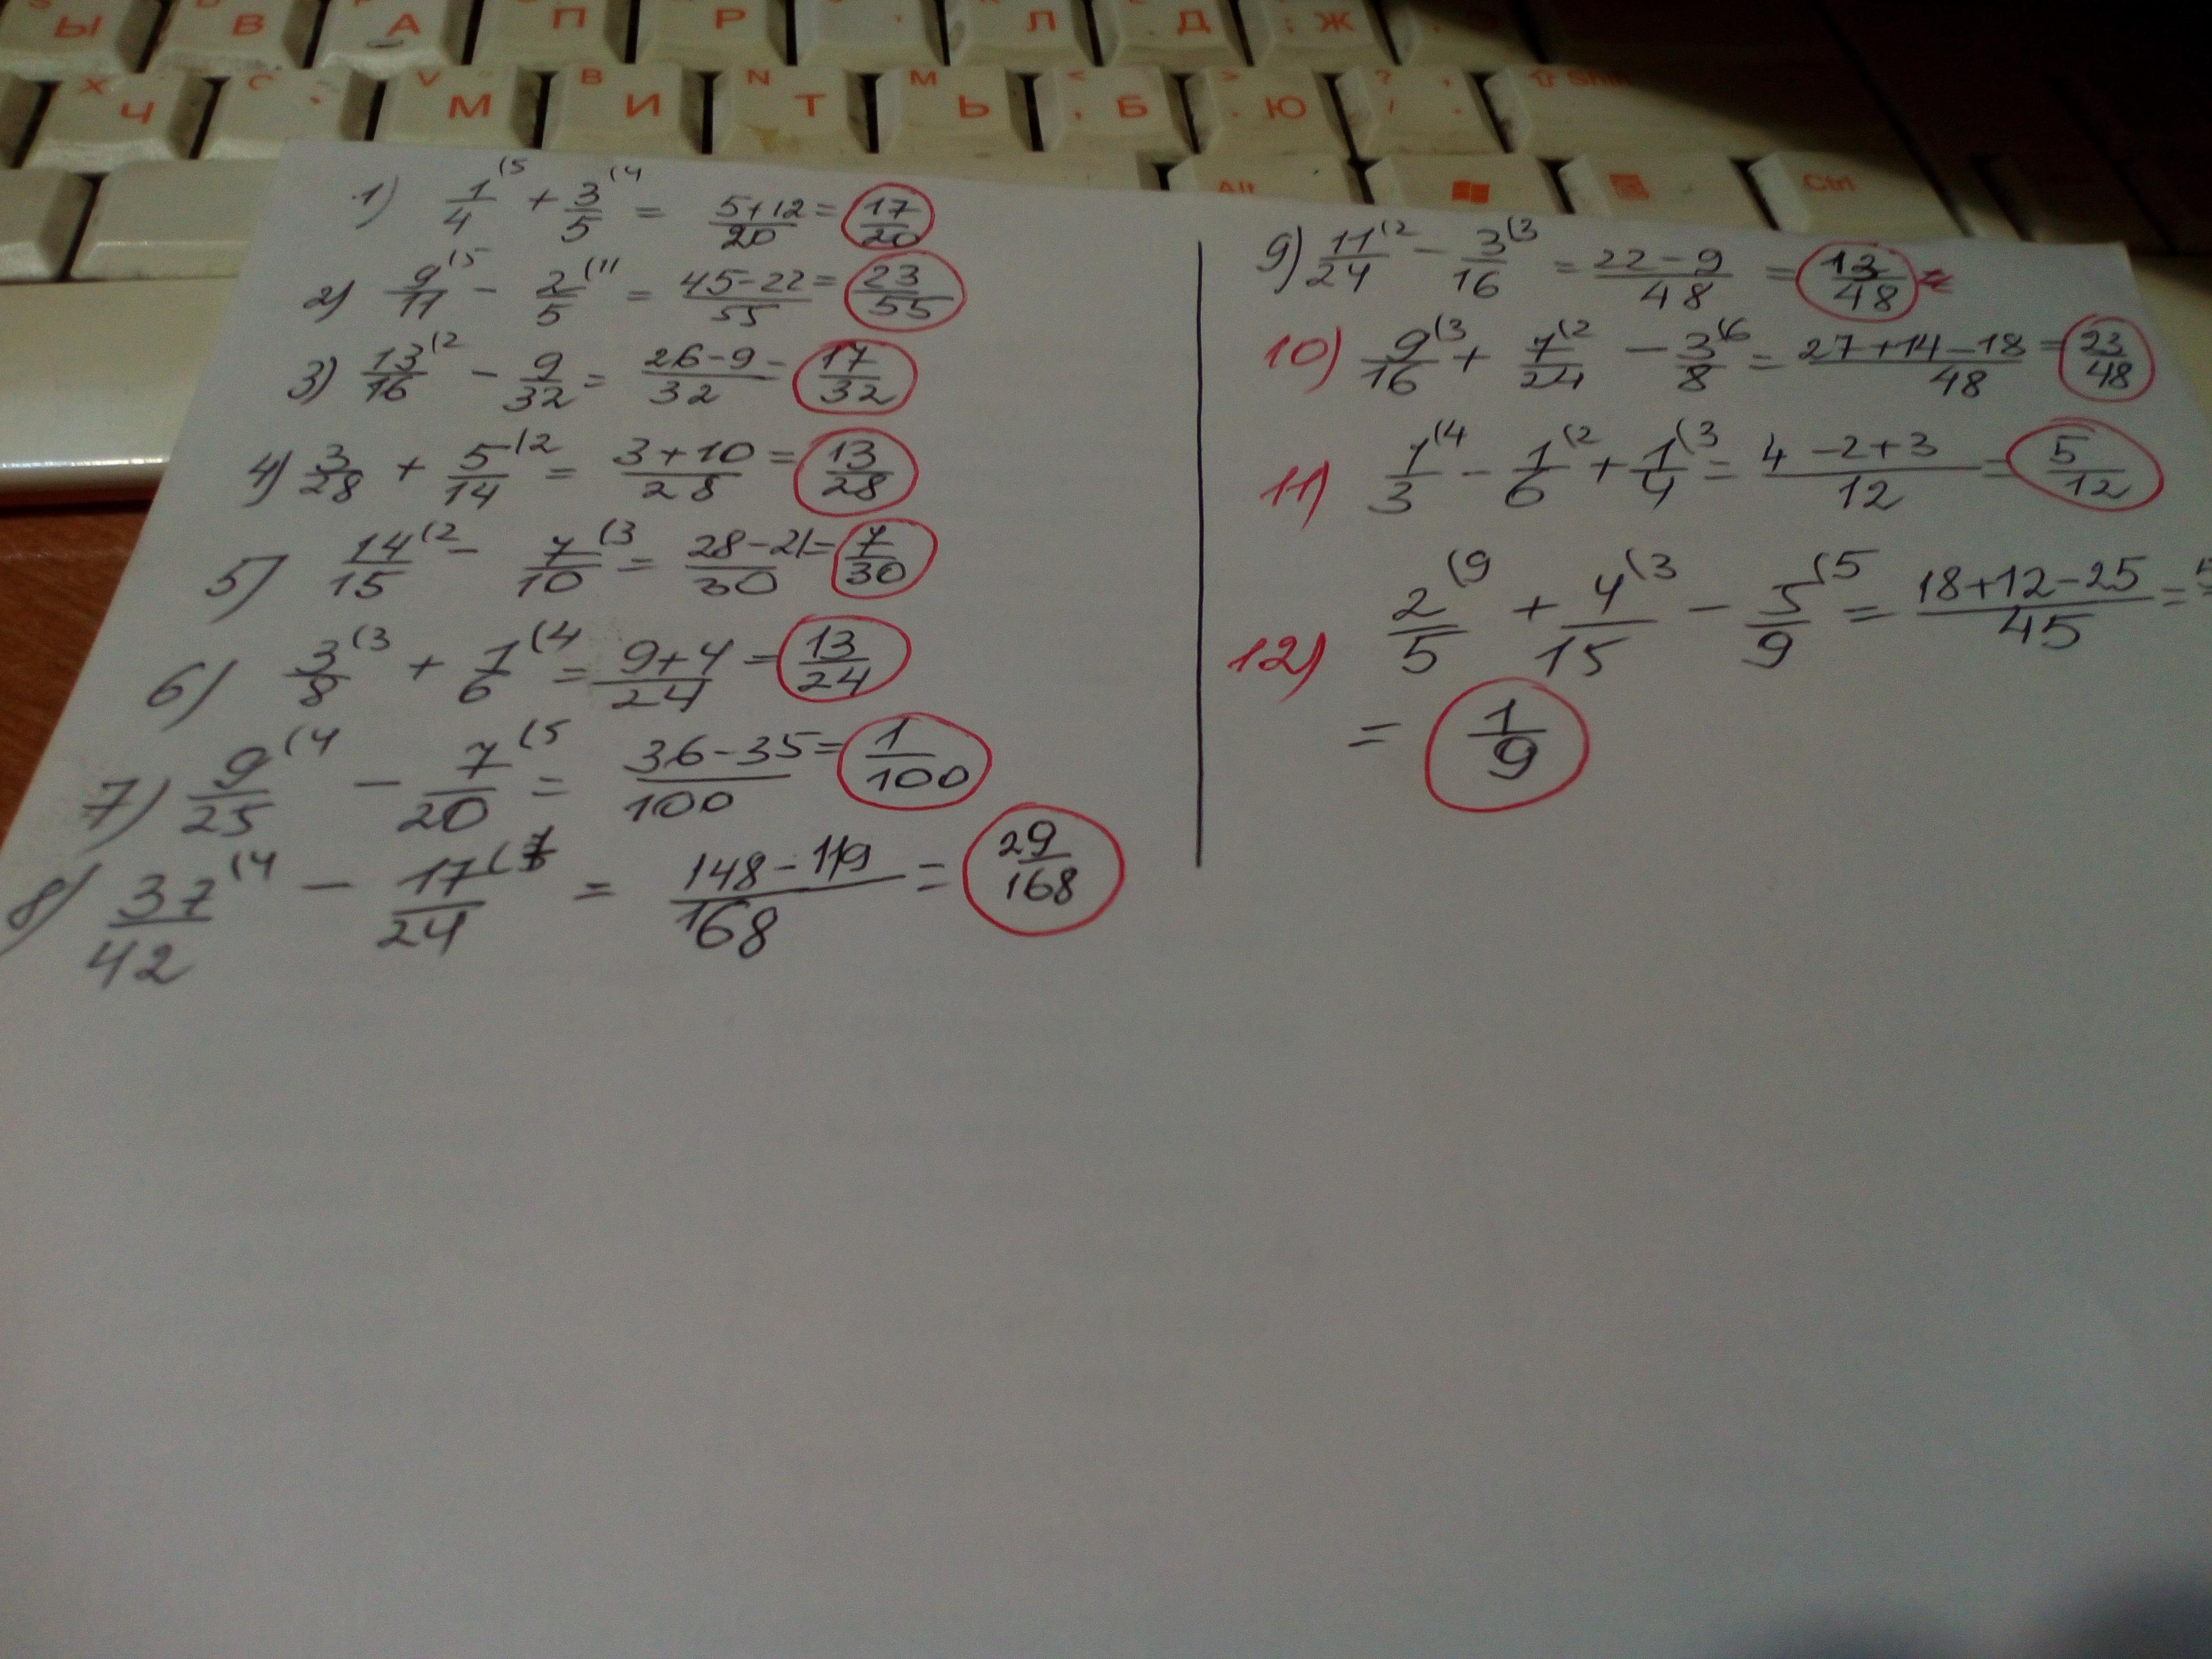 Ы В А П Р Л Д ; Ж
X Ч C V М B И N Т M Ь < , Б > . Ю ? / , . ⇧ Shift
Alt Ctrl
1) 1/4 (5 + 3/5 (4 = 5+12/20 = 17/20
2) 9/11 (5 - 2/5 (11 = 45-22/55 = 23/55
3) 13/16 (2 - 9/32 = 26-9/32 = 17/32
4) 3/28 + 5/14 (2 = 3+10/28 = 13/28
5) 14/15 (2 - 7/10 (3 = 28-21/30 = 7/30
6) 3/8 (3 + 1/6 (4 = 9+4/24 = 13/24
7) 9/25 (4 - 7/20 (5 = 36-35/100 = 1/100
8) 37/42 (4 - 17/24 (7 = 148-119/168 = 29/168
9) 11/24 (2 - 3/16 (3 = 22-9/48 = 13/48
10) 9/16 (3 + 7/24 (2 - 3/8 (6 = 27+14-18/48 = 23/48
11) 1/3 (4 - 1/6 (2 + 1/4 (3 = 4-2+3/12 = 5/12
12) 2/5 (9 + 4/15 (3 - 5/9 (5 = 18+12-25/45 =
= 1/9